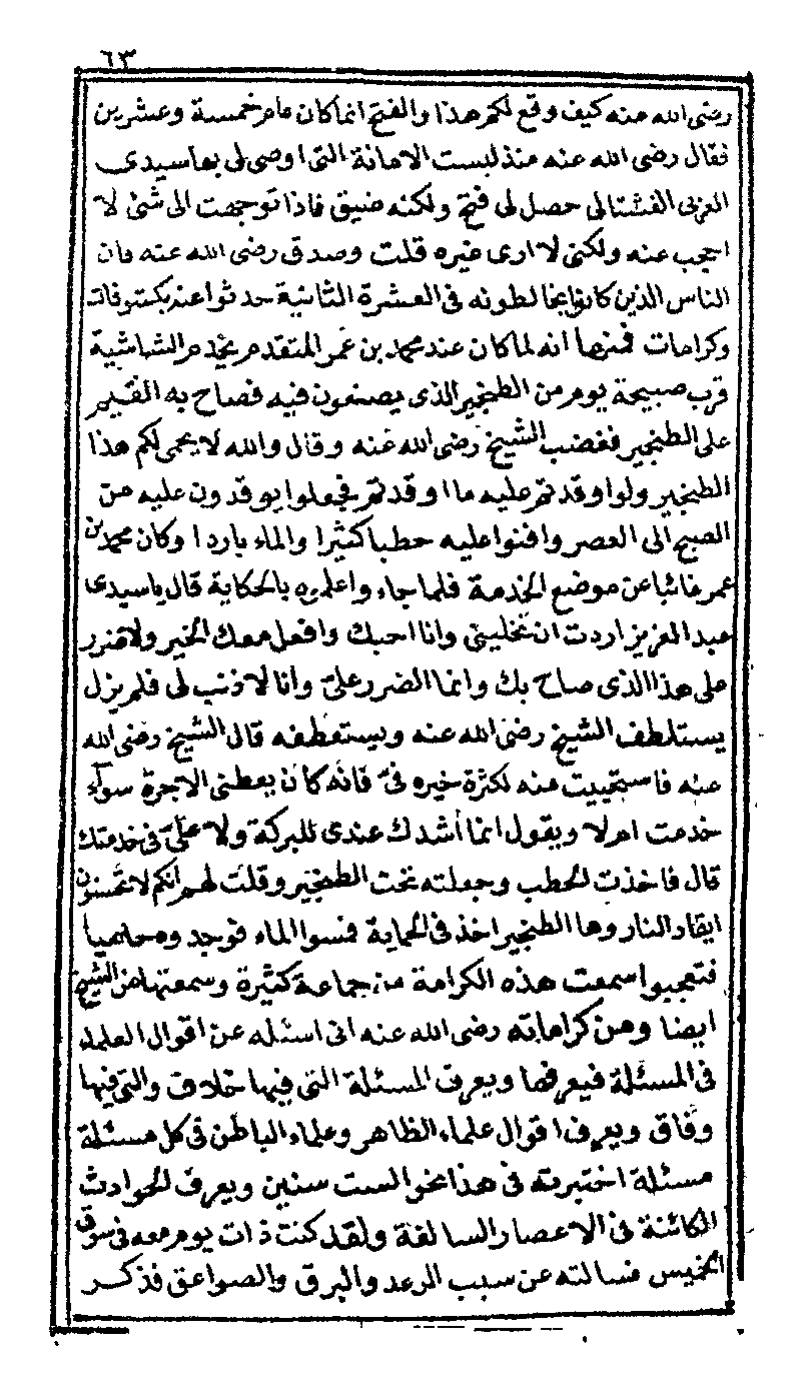 ٦٣
رضى الله عنه كيف وقع لكم هذا والفتح انما كان عام خمسة وعشرين
فقال رضى الله عنه منذ لبست الامانة التى اوصى لى بها سيدى
العربى الفشتالى حصل لى فتح ولكنه ضيق فاذا توجهت الى شئ لا
احجب عنه ولكنى لا ارى غيره قلت وصدق رضى الله عنه فان
الناس الذين كانوا يخالطونه فى العشرة الثانية حدثوا عنه بكشوفات
وكرامات فمنها انه لما كان عند محمد بن عمر المتقدم يخدم الشاشية
قرب صبيحة يوم من الطنجير الذى يصنعون فيه فصاح به القيم
على الطنجير فغضب الشيخ رضى الله عنه وقال والله لا يحمى لكم هذا
الطنجير ولو اوقدتم عليه ما اوقدتم فجعلوا يوقدون عليه من
الصبح الى العصر وافنوا عليه حطبا كثيرا والماء باردا وكان محمد بن
عمر غائبا عن موضع الخدمة فلما جاء واعلموه بالحكاية قال يا سيدى
عبد العزيز اردت ان تخلينى وانا احبك وافعل معك الخير ولا ضرر
على هذا الذى صاح بك وانما الضرر علىّ وانا لا ذنب لى فلم يزل
يستلطف الشيخ رضى الله عنه ويستعطفه قال الشيخ رضى الله
عنه فاستحييت منه لكثرة خيره فىّ فانه كان يعطنى الاجرة سوآء
خدمت ام لا ويقول انما أشدك عندى للبركة ولا علىّ فى خدمتك
قال فاخذت الحطب وجعلته تحت الطنجير وقلت لهم انكم لا تحسنون
ايقاد النار وها الطنجير اخذ فى الحماية فمسوا الماء فوجدوه حاميا
فتعجبوا سمعت هذه الكرامة من جماعة كثيرة وسمعتها من الشيخ
ايضا ومن كراماته رضى الله عنه انى اسئله عن اقوال العلماء
فى المسئلة فيعرفها ويعرف المسئلة التى فيها خلاف والتى فيها
وفاق ويعرف اقوال علماء الظاهر وعلماء الباطن فى كل مسئلة
مسئلة اختبرته فى هذا نحوا لست سنين ويعرف الحوادث
الكائنة فى الاعصار السالفة ولقد كنت ذات يوم معه فى سوق
الخميس فسالته عن سبب الرعد والبرق والصواعق فذكر